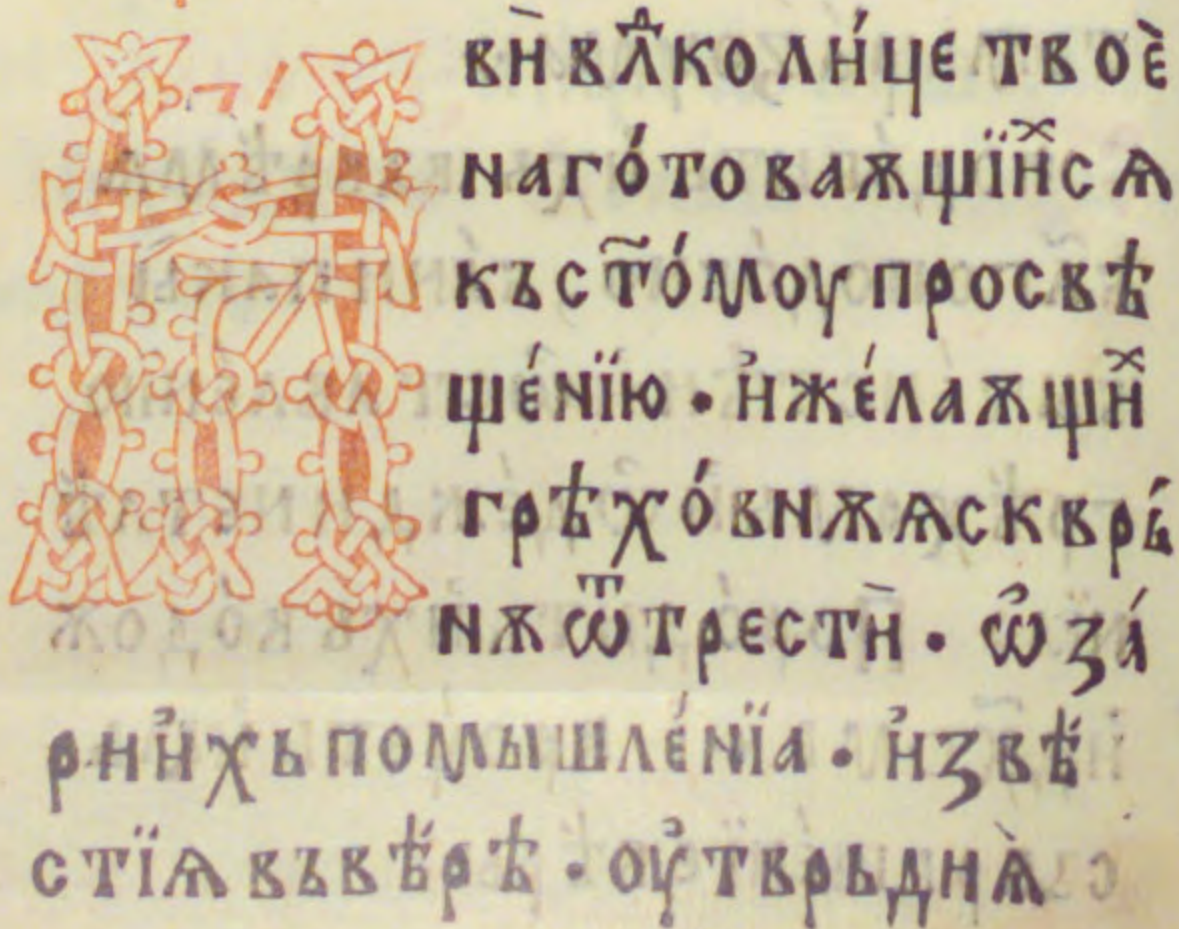 Ꙗви̏ влⷣко лице твое̏
на гото́ваѫщїи́хсѧ
къ ст҃о́моу просвѣ
ще́нїю · и҆ жела́ѫщи́хⷯ
грѣхо́внѫѧ скврь́
нѫ ѿтрести̏ · ѡ҆за́
ри и҆хь помышле́нїа · и҆звѣ́
стїѧ въ вѣ́рѣ · оу҆тврьди ѧ̀